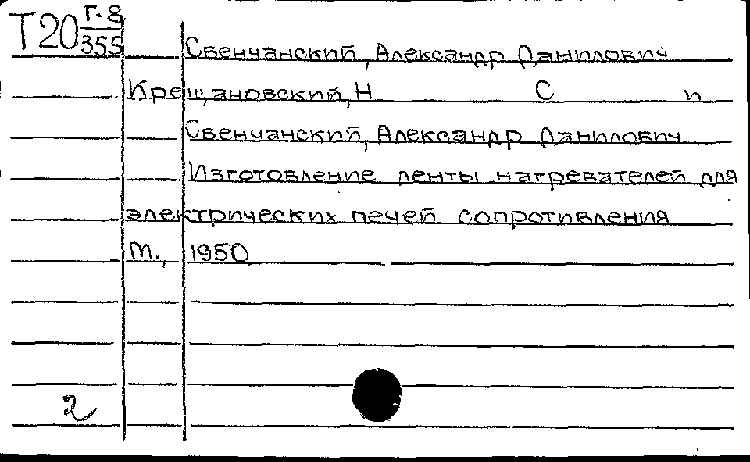 Т20 Г-8
355
Свенчанский, Александр Данилович
Крещановский, Н С и
Свенчанский, Александр Данилович
Изготовление ленты нагревателей для
электрических печей сопротивления
М., 1950
2